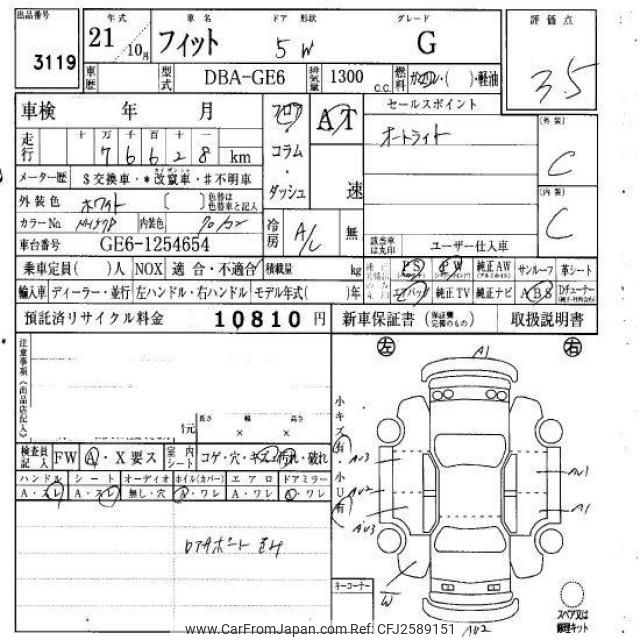 出品番号 年式 車名 ドア 形状 グレード 評価点
3119 21 10月 フィット 5 W G 3.5
車歴 型式 DBA-GE6 排気量 1300 C.C. 燃料 ガソリン・( )・軽油
車検 年 月 フロア AT セールスポイント
走行 十 万 千 百 十 一 オートライト (外装)
7 6 6 2 8 km コラム・ C
メーター歴 $交換車・*改竄車・#不明車 ダッシュ 速 (内装)
外装色 ホワイト ( ) 色替は色替車と記入 C
カラーNo. NH578 内装色 クロカン 冷房 A/C 無
車台番号 GE6-1254654 該当車は丸印 ユーザー仕入車
乗車定員( )人 NOX 適合・不適合 積載量 kg PS PW 純正AW サンルーフ 革シート
輸入車 ディーラー・並行 左ハンドル・右ハンドル モデル年式( )年 エアバッグ 純正TV 純正ナビ ABS Dチューナー
預託済リサイクル料金 10810 円 新車保証書 (保証書完備のもの) 取扱説明書
注意事項《出品店記入》
左 A1 右
長さ 幅 高さ
×  ×
小キズ(有)・小U(有)
検査員記入 FW A・X要ス 室内シート コゲ・穴・キズ・汚れ・破れ
ハンドル シート オーディオ ホイル(カバー) エアロ ドアミラー
A・スレ A・スレ 無し・穴 A・ワレ A・ワレ A・ワレ
AU3 AU1
AU2
AU3 A1
ロアサポート
キーコーナー
W
AU2
スペア又は修理キット
www.CarFromJapan.com Ref: CFJ2589151